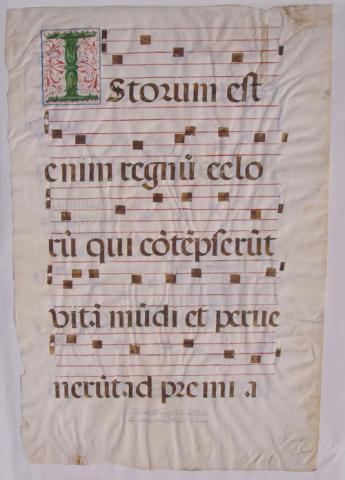 IStorum est
enim regnū celo
rū qui cōtēpserūt
vitā mūdi et perue
nerūt ad premi a